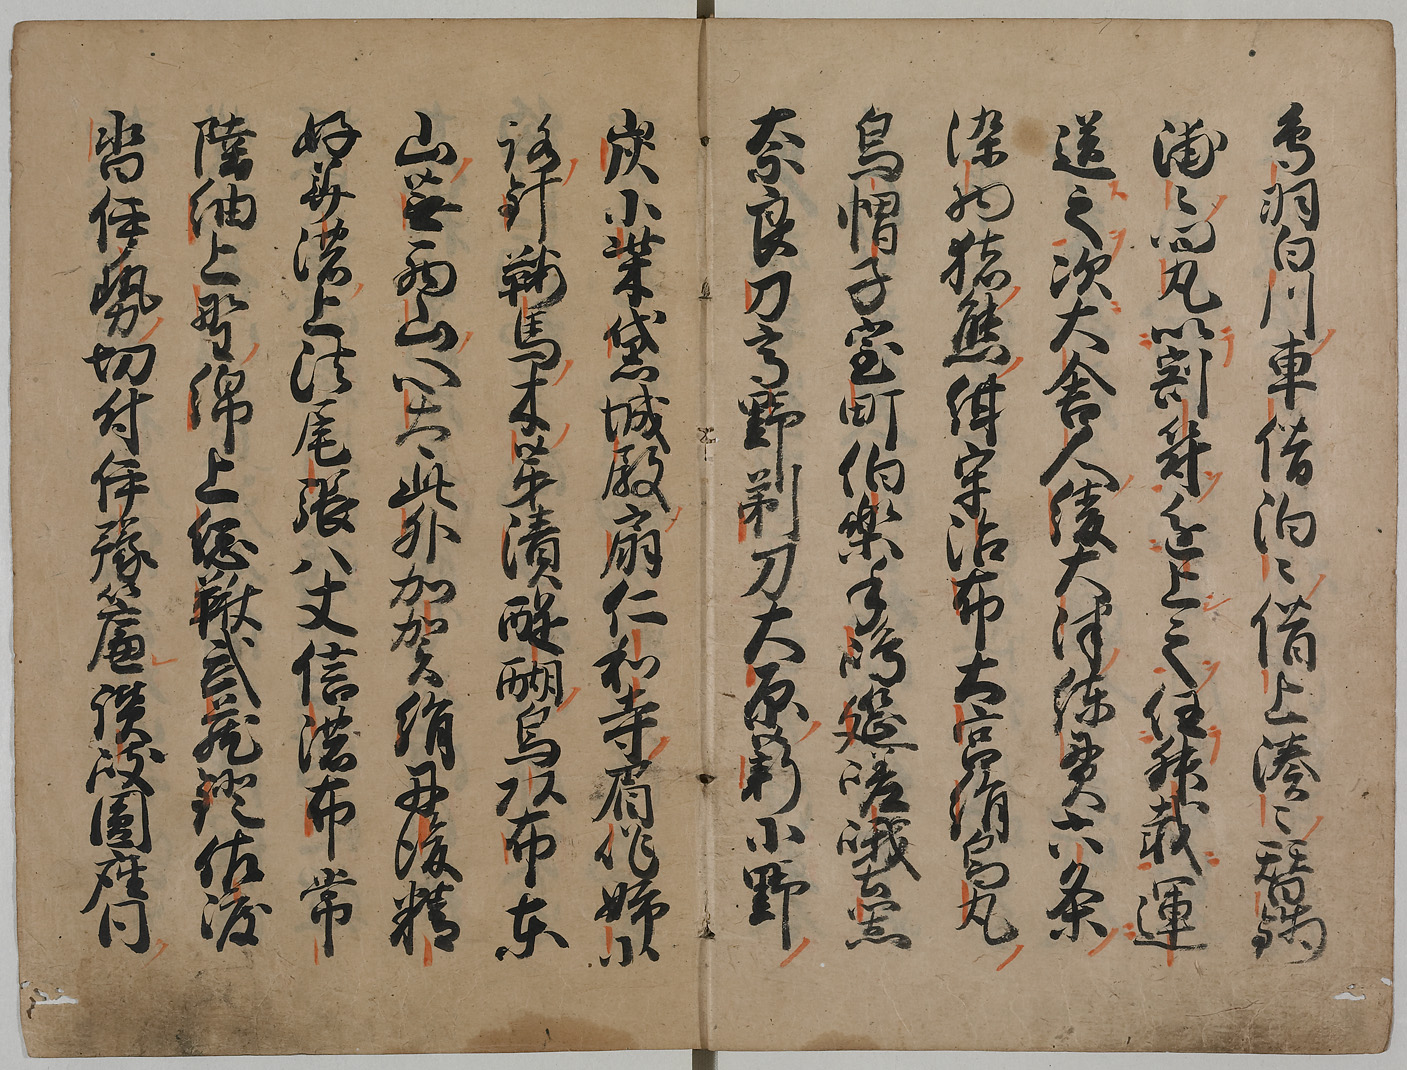 鳥羽白川車借泊〻借上湊〻替銭
浦〻問丸以割符進上之任俶載運
送之次大舎人綾大津練貫六条
染物猪熊紺宇治布大宮絹烏丸
烏帽子室町伯楽手嶋筵嵯峨土器
奈良刀高野剃刀大原薪小野
炭小柴黛城殿扇仁和寺眉作姉小
路針鞍馬木芽漬醍醐烏頭布東
山蕪西山心太此外加賀絹丹後精
好美濃上法尾張八丈信濃布常
陸紬上野綿上総鞦武蔵鐙佐渡
沓伊勢切付伊豫簾讃岐圓座同